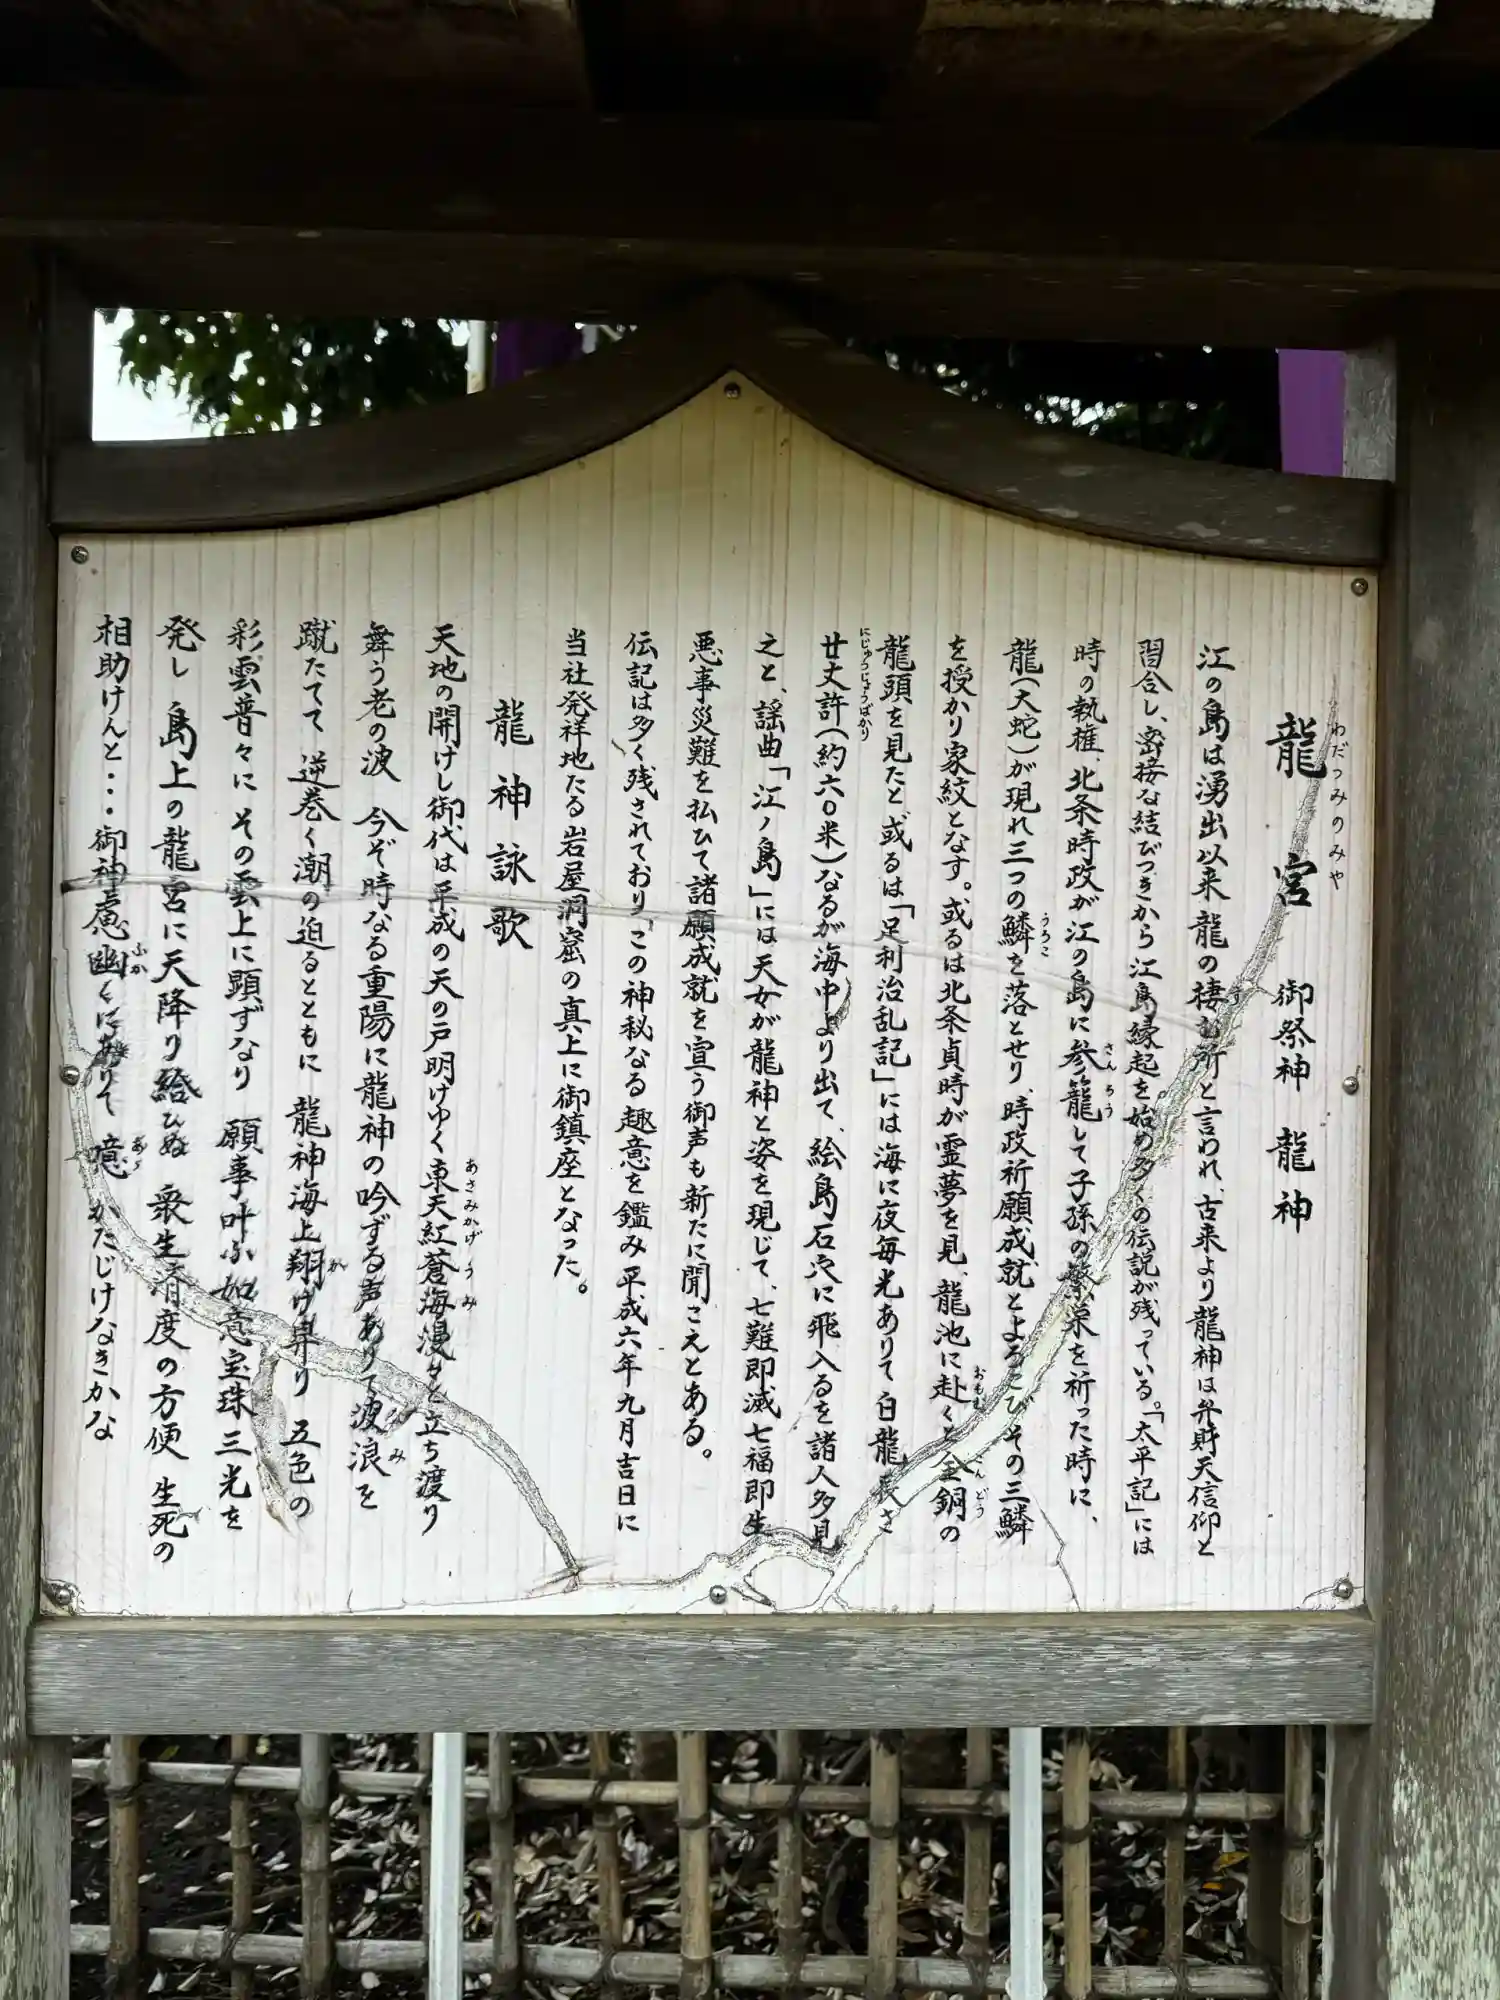 龍宮 御祭神 龍神
わだつみのみや
江の島は湧出以来龍の棲む所と言われ、古来より龍神は弁財天信仰と
習合し、密接な結びつきから江島縁起を始め多くの伝説が残っている。「太平記」には
時の執権、北条時政が江の島に参籠して子孫の繁栄を祈った時に、
さんろう
龍(大蛇)が現れ三つの鱗を落とせり、時政祈願成就とよろこびその三鱗
うろこ
を授かり家紋となす。或るは北条貞時が霊夢を見、龍池に赴くと金銅の
おもむ
こんどう
龍頭を見たと或るは「足利治乱記」には海に夜毎光ありて白龍長さ
廿丈許(約六〇米)なるが海中より出て、絵島石穴に飛入るを諸人多見
にじゅうじょうばかり
之と、謡曲「江ノ島」には天女が龍神と姿を現じて、七難即滅七福即生
悪事災難を払ひて諸願成就を宣う御声も新たに聞こえとある。
伝記は多く残されており、この神秘なる趣意を鑑み平成六年九月吉日に
当社発祥地たる岩屋洞窟の真上に御鎮座となった。
龍神詠歌
天地の開けし御代は平成の天の戸明けゆく東天紅蒼海漫々と立ち渡り
あさみかげ うみ
舞う老の波 今ぞ時なる重陽に龍神の吟ずる声ありて波浪を
なみ
蹴たてて 逆巻く潮の迫るとともに 龍神海上翔げ昇り 五色の
か
彩雲普々に その雲上に顕ずなり 願事叶ふ如意宝珠三光を
発し 島上の龍宮に天降り給ひぬ 衆生済度の方便 生死の
相助けんと・・・御神慮幽くにありて 噫 かたじけなきかな
ふか
ああ